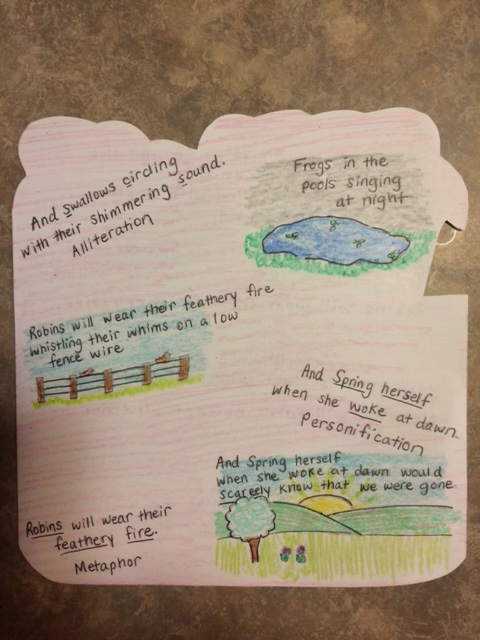 And swallows circling
with their shimmering sound.
Alliteration
Frogs in the
pools singing
at night
Robins will wear their feathery fire
whistling their whims on a low
fence wire
And Spring herself
when she woke at dawn
Personification
And Spring herself
when she woke at dawn would
scarcely know that we were gone
Robins will wear their
feathery fire.
Metaphor